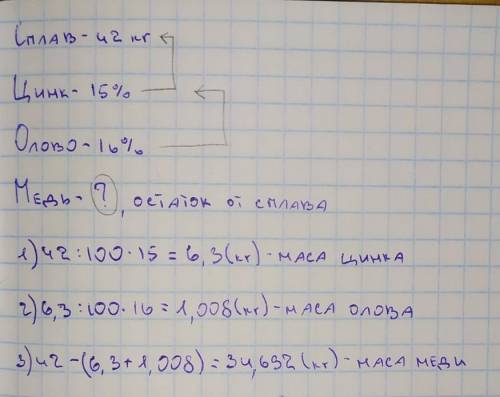 Сплав - 42 кг
Цинк - 15%
Олово - 16%
Медь - ?, остаток от сплава
1) 42 : 100 · 15 = 6,3 (кг) - маса цинка
2) 6,3 : 100 · 16 = 1,008 (кг) - маса олова
3) 42 - (6,3 + 1,008) = 34,692 (кг) - маса меди